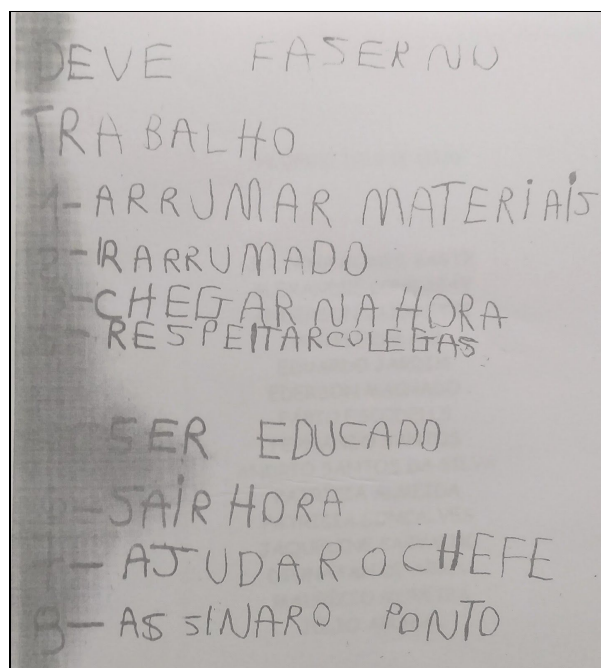 DEVE FASER NU
TRABALHO
1-ARRUMAR MATERIAIS
2-IRARRUMADO
3-CHEGAR NA HORA
RESPEITARCOLEGAS
SER EDUCADO
6-SAIR HORA
7-AJUDAR O CHEFE
8-ASSINARO PONTO